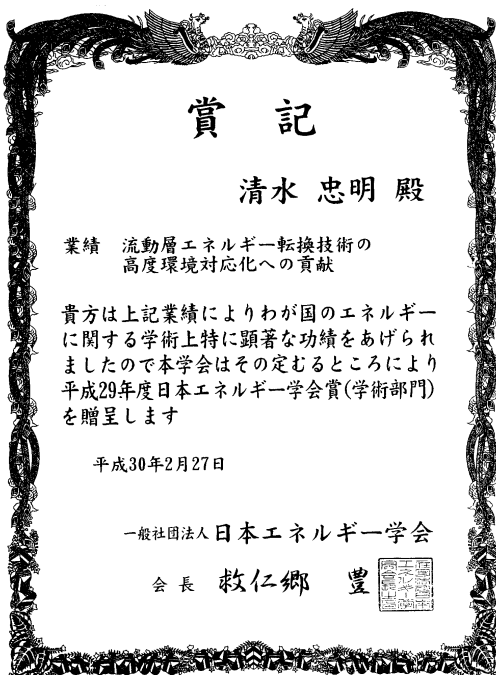 賞 記
清水 忠明 殿
業績 流動層エネルギー転換技術の
高度環境対応化への貢献
貴方は上記業績によりわが国のエネルギー
に関する学術上特に顕著な功績をあげられ
ましたので本学会はその定むるところにより
平成29年度日本エネルギー学会賞(学術部門)
を贈呈します
平成30年2月27日
一般社団法人 日本エネルギー学会
会長 救仁郷 豊